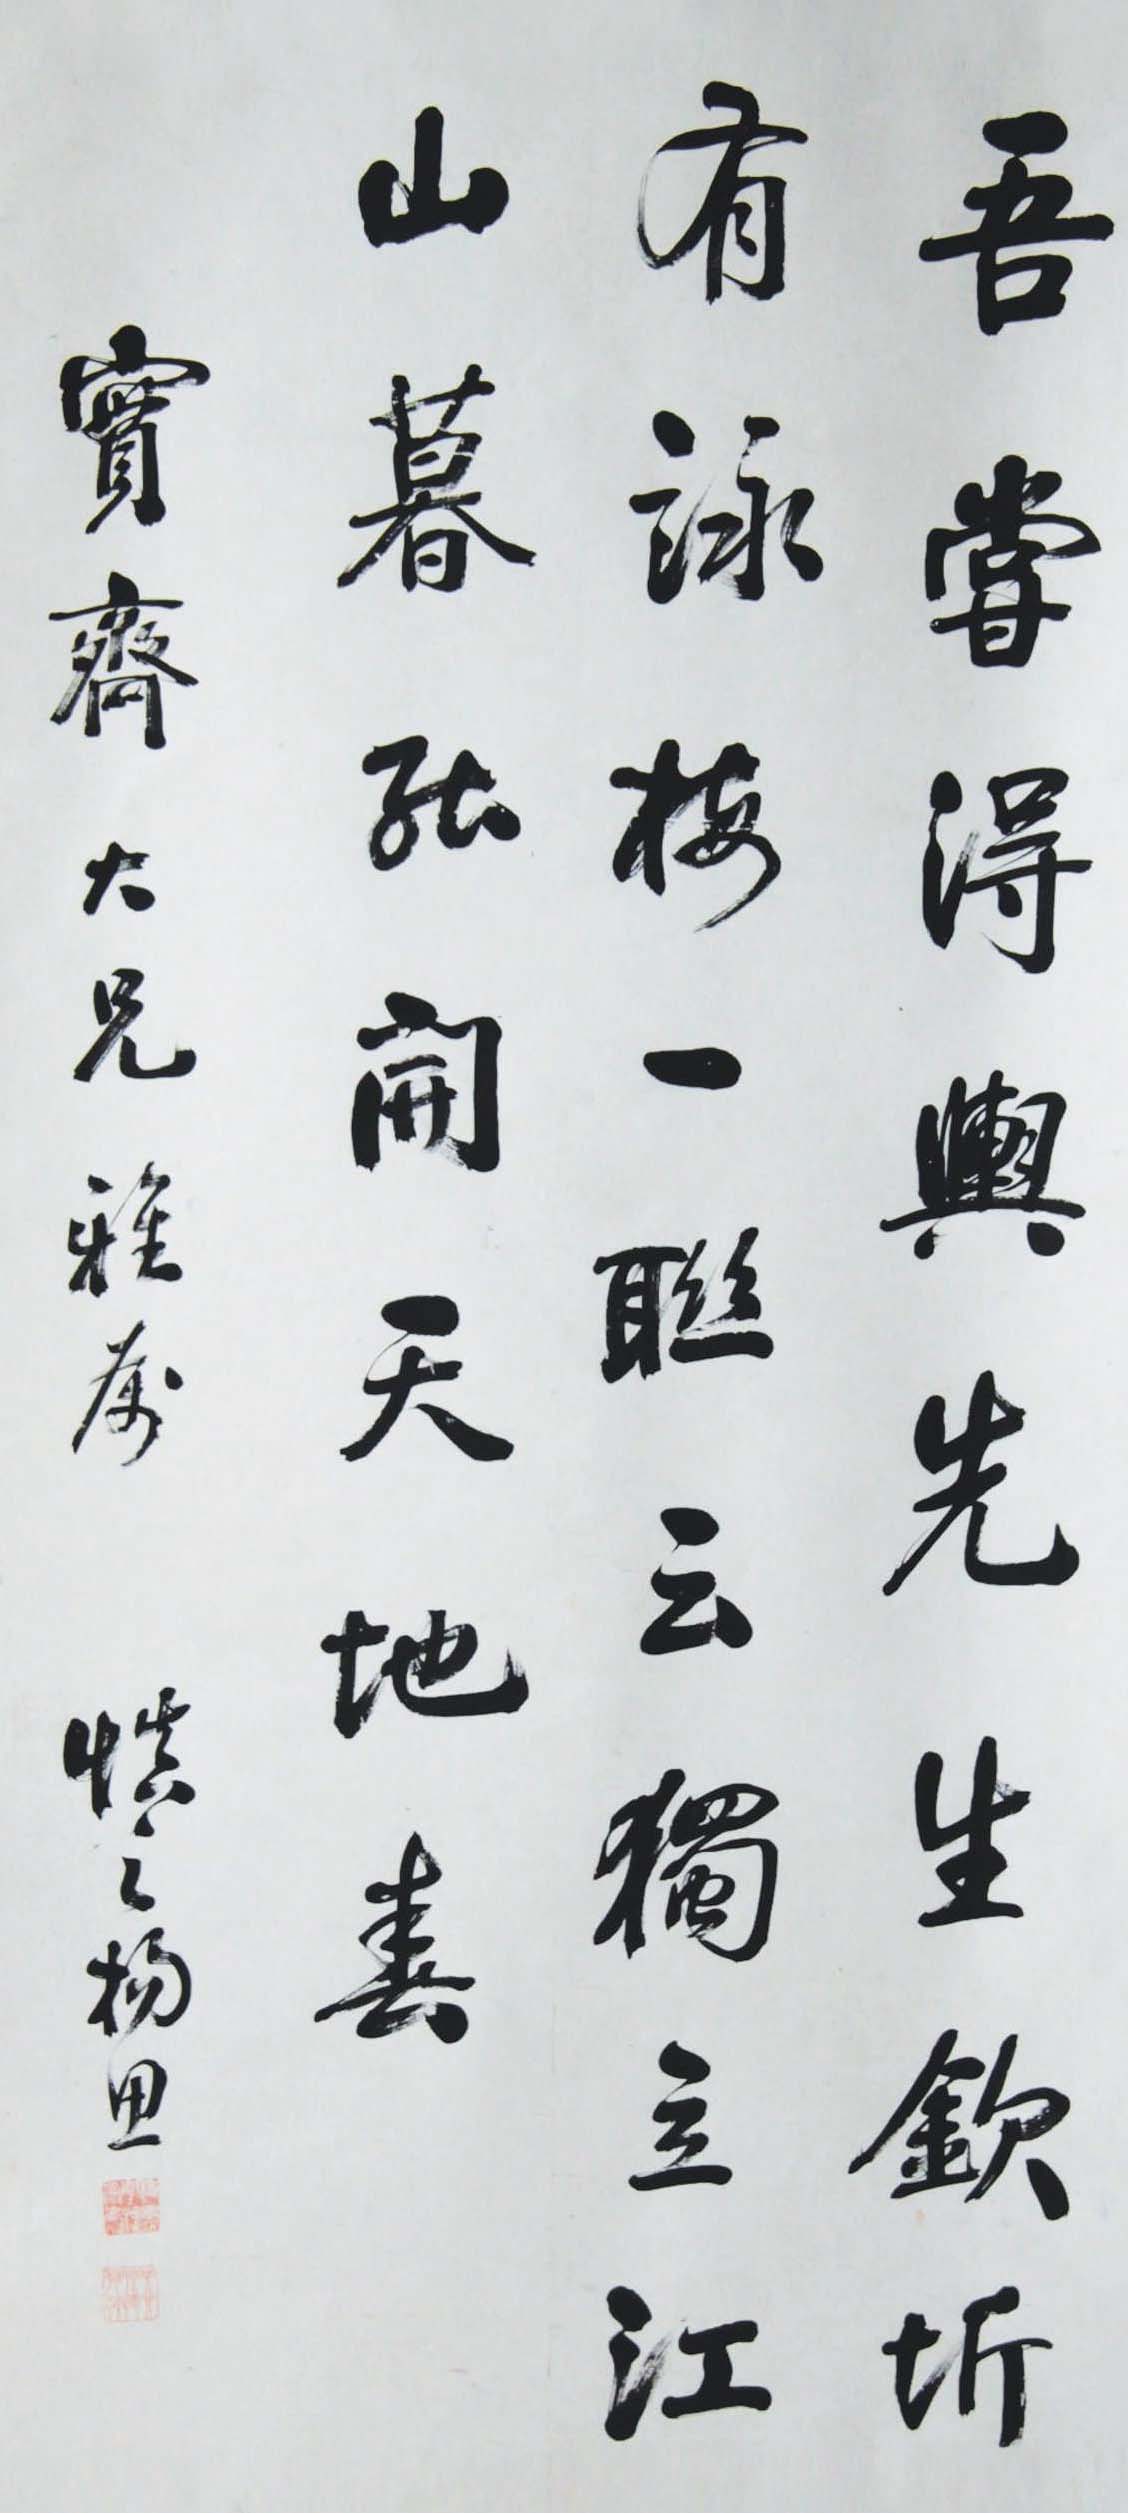 吾嘗得輿先生欽圻
有詠梅一聯云獨立江
山暮能開天地春
寶齋大兄雅屬　慎之楊思